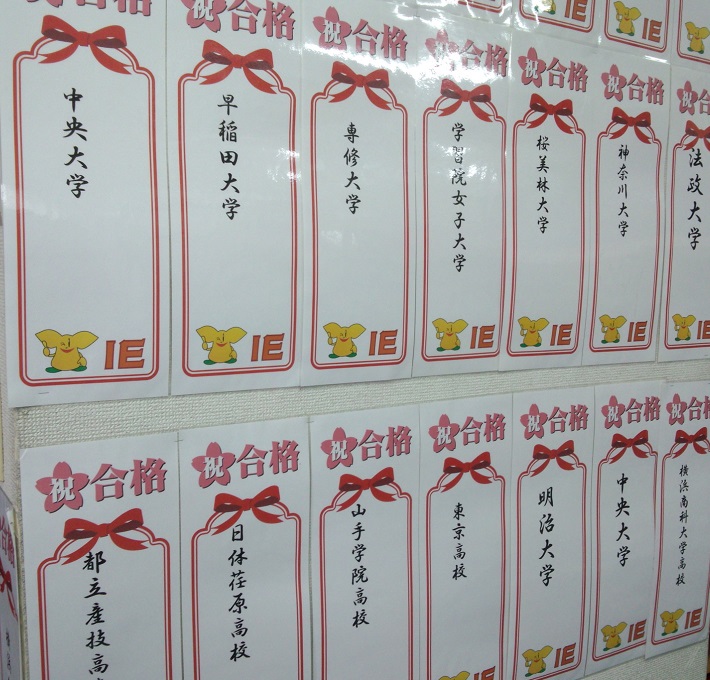 祝合格
中央大学
IE
祝合格
早稲田大学
IE
祝合格
専修大学
IE
祝合格
学習院女子大学
IE
祝合格
桜美林大学
IE
祝合格
神奈川大学
IE
祝合格
法政大学
IE
IE
IE
祝合格
都立産技高
祝合格
日体荏原高校
祝合格
山手学院高校
祝合格
東京高校
IE
祝合格
明治大学
IE
祝合格
中央大学
IE
祝合格
横浜商科大学高校
IE